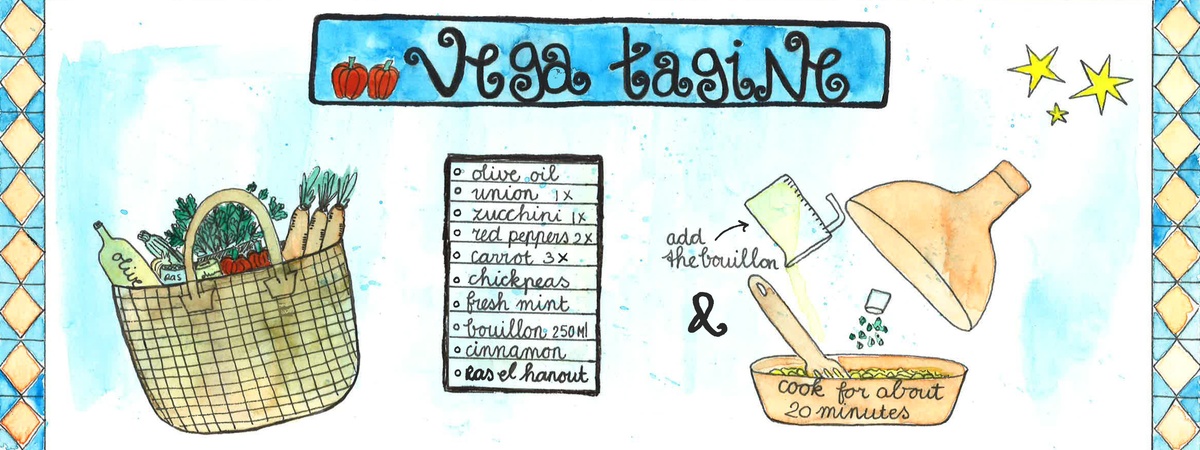 Vega tagiNe
olive
Ras
olive oil
union 1x
zucchini 1x
red peppers 2x
carrot 3x
chickpeas
fresh mint
bouillon 250Ml
cinnamon
Ras el hanout
add
the bouillon
&
cook for about
20 minutes